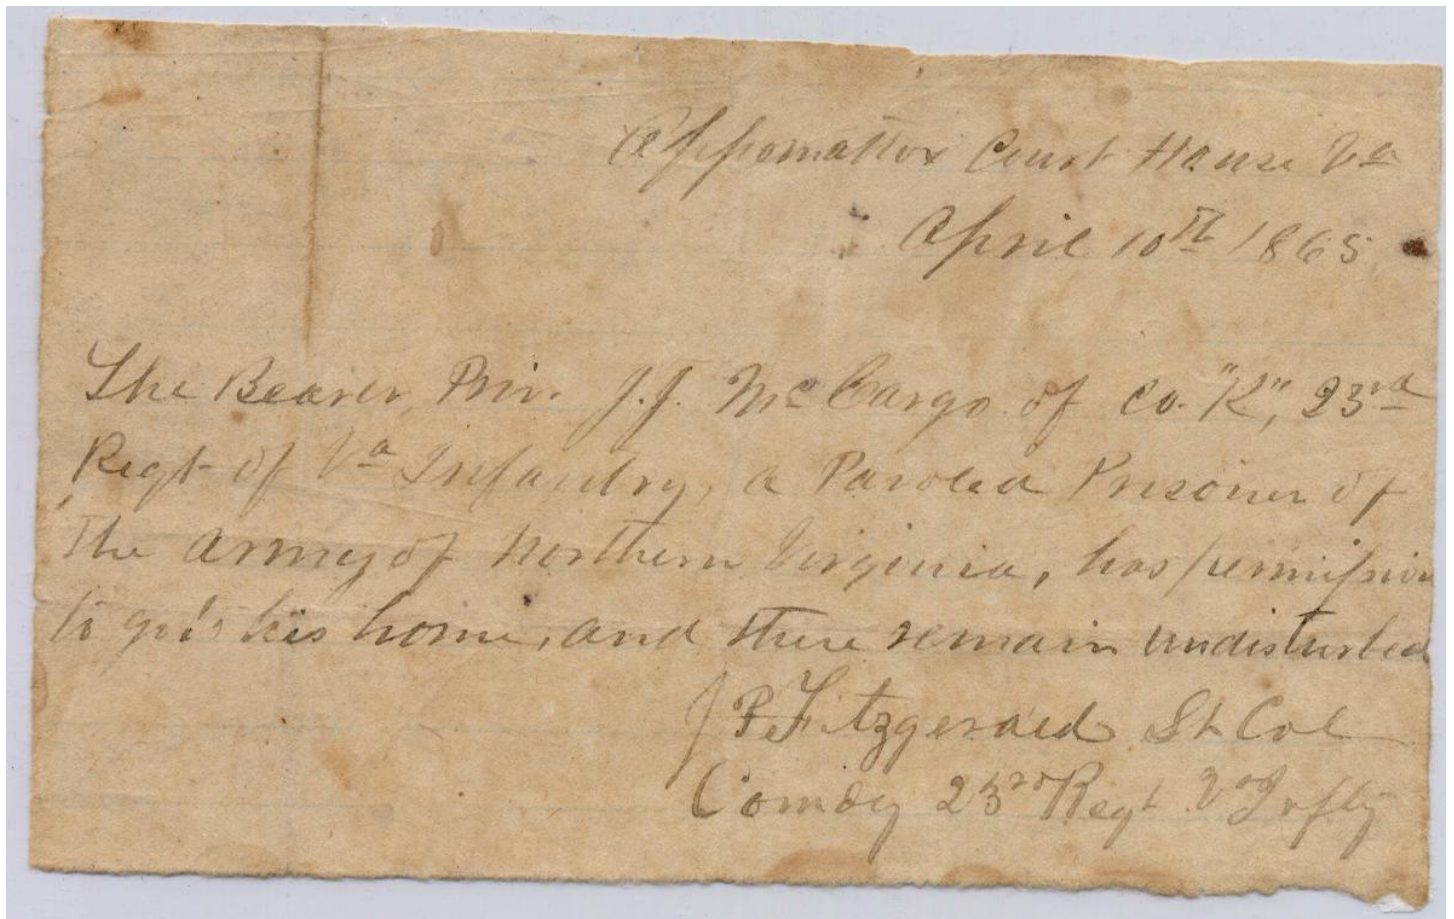 Appomattox Court House Va
April 10th 1865
The Bearer, Priv. J.J. McCargo of Co. "K", 23rd
Regt of Va Infantry, a Paroled Prisoner of
The Army of Northern Virginia, has permission
to go to his home, and there remain undisturbed
J P. Fitzgerald Lt Col
Comdg 23rd Regt Va Infty